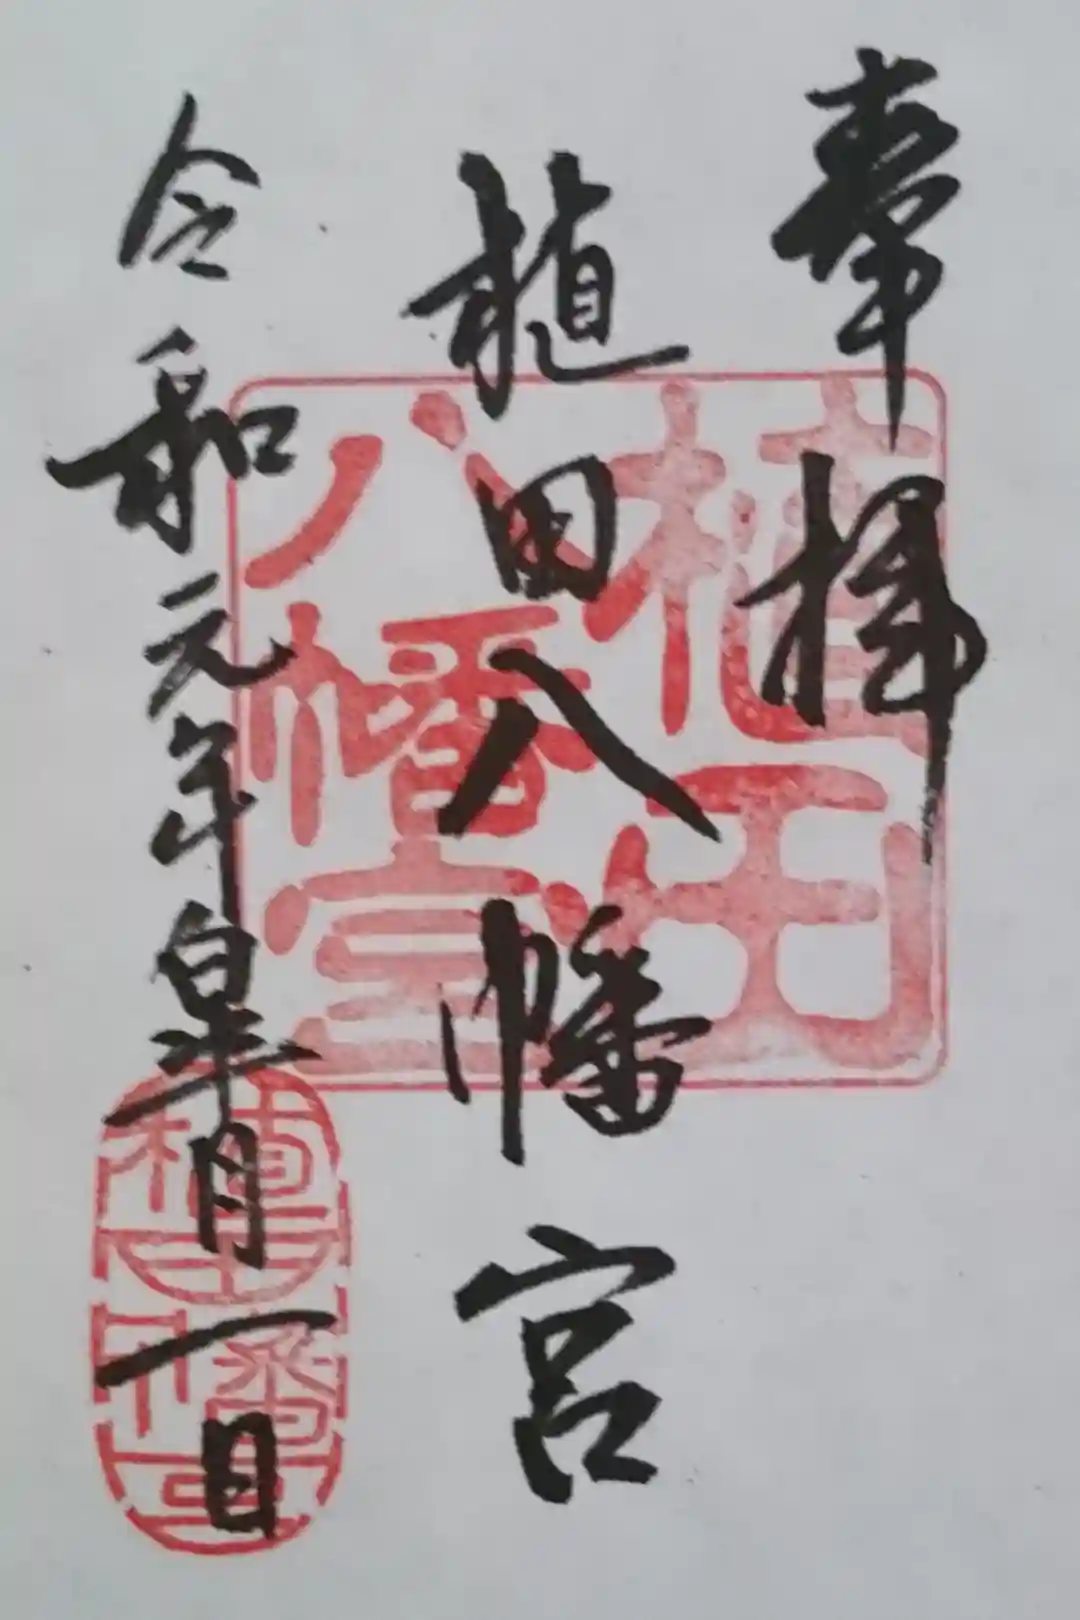 奉拝
植田八幡宮
令和元年皐月一日
植田
八幡宮